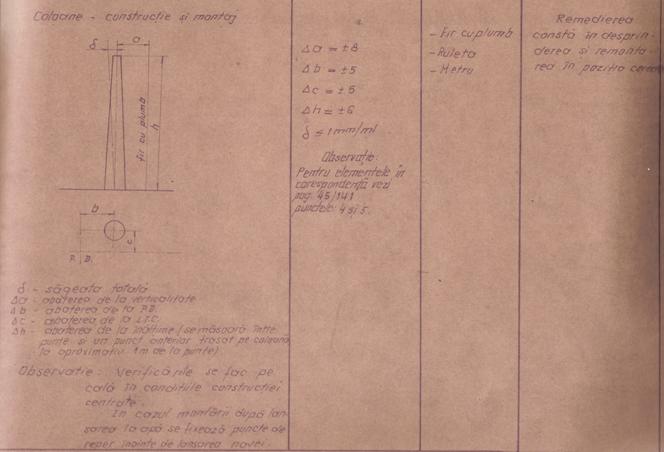 Coloane - construcție și montaj
δ
a
fir cu plumb
h
b
c
P.D.
δ - săgeata totală
Δa - abaterea de la verticalitate
Δb - abaterea de la P.D.
Δc - abaterea de la L.T.C.
Δh - abaterea de la înălțime (se măsoară între
punte și un punct anterior trasat pe coloană
la aproximativ 1m de la punte)
Observație: Verificările se fac pe
cală în condițiile construcției
centrate.
În cazul montării după lan-
sarea la apă se fixează puncte de
reper înainte de lansarea navei.
Δa = ±8
Δb = ±5
Δc = ±5
Δh = ±6
δ ≤ 1mm/ml
Observație:
Pentru elementele în
corespondență vezi
pag. 45/141
punctele 4 și 5.
- Fir cu plumb
- Ruleta
- Metru
Remedierea
constă în desprin-
derea și remonta-
rea în poziția